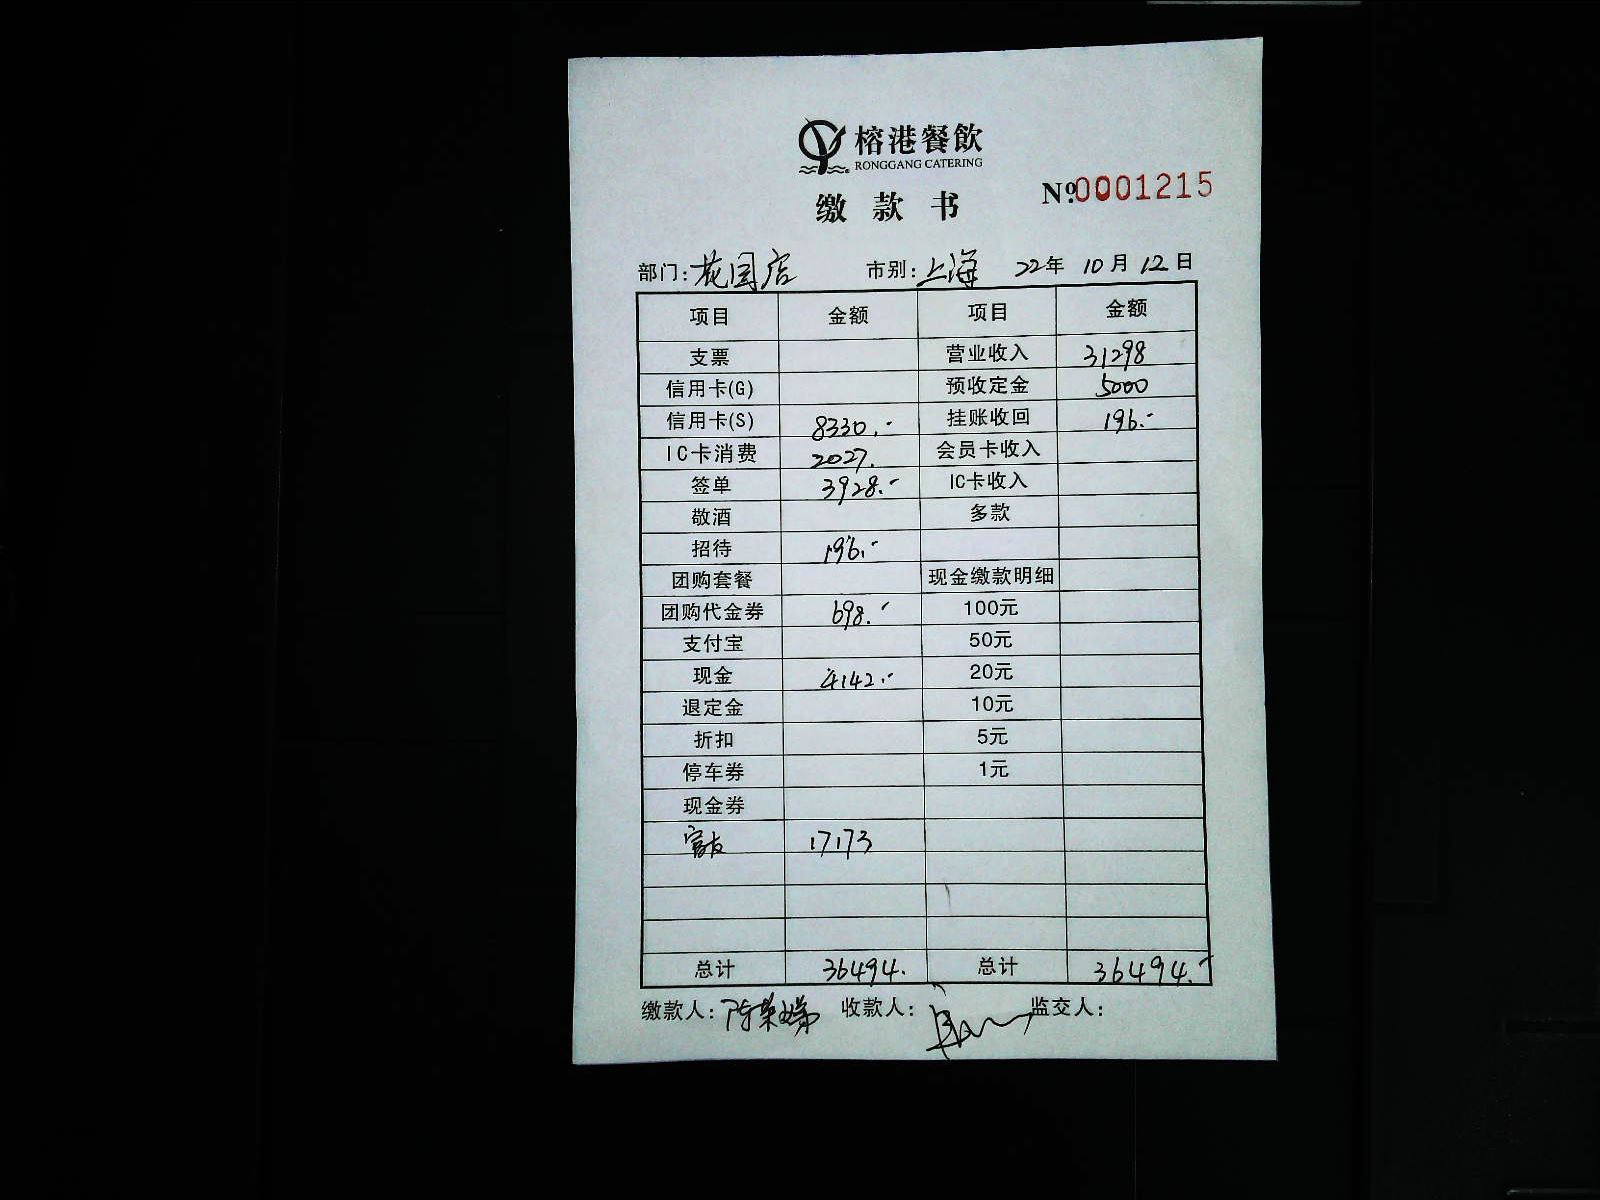 榕港餐飲
RONGGANG CATERING
缴款书
Nº0001215
部门:花园店 市别:上海 22年10月12日
项目 金额 项目 金额
支票 营业收入 31298
信用卡(G) 预收定金 5000
信用卡(S) 8330.- 挂账收回 196.-
IC卡消费 2027. 会员卡收入
签单 3928.- IC卡收入
敬酒 多款
招待 196.-
团购套餐 现金缴款明细
团购代金券 698.- 100元
支付宝 50元
现金 4142.- 20元
退定金 10元
折扣 5元
停车券 1元
现金券
17173
总计 36494. 总计 36494.-
缴款人: 收款人: 监交人: